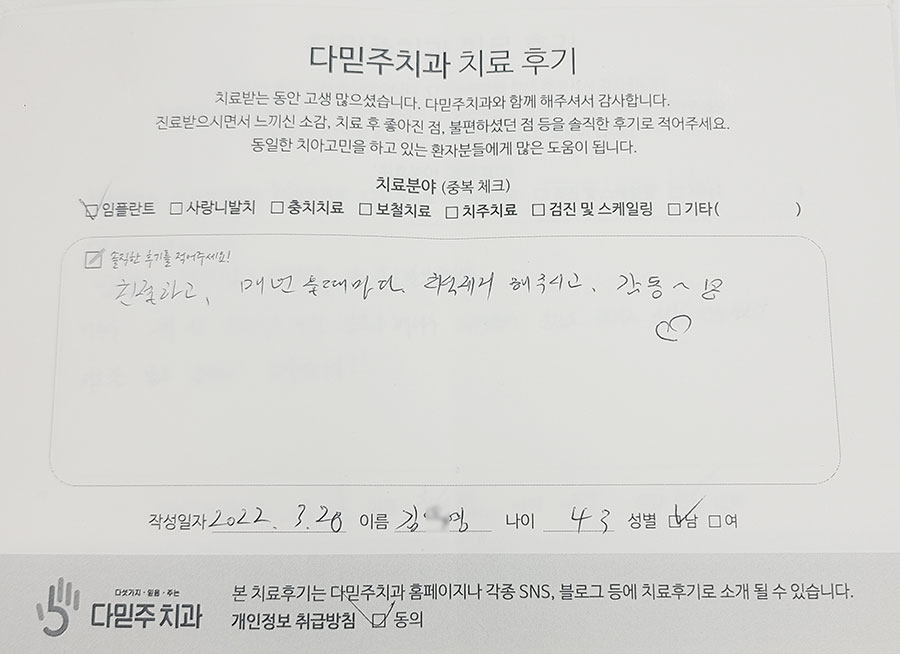 다믿주치과 치료 후기
치료받는 동안 고생 많으셨습니다. 다믿주치과와 함께 해주셔서 감사합니다.
진료받으시면서 느끼신 소감, 치료 후 좋아진 점, 불편하셨던 점 등을 솔직한 후기로 적어주세요.
동일한 치아고민을 하고 있는 환자분들에게 많은 도움이 됩니다.
치료분야 (중복 체크)
임플란트 사랑니발치 충치치료 보철치료 치주치료 검진 및 스케일링 기타( )
솔직한 후기를 적어주세요!
친절하고, 매번 올때마다 해주시고, 감동~
작성일자 2022. 3. 28 이름 김 나이 43 성별 남 여
다섯가지·믿음·주는
다믿주치과
본 치료후기는 다믿주치과 홈페이지나 각종 SNS, 블로그 등에 치료후기로 소개 될 수 있습니다.
개인정보 취급방침 동의